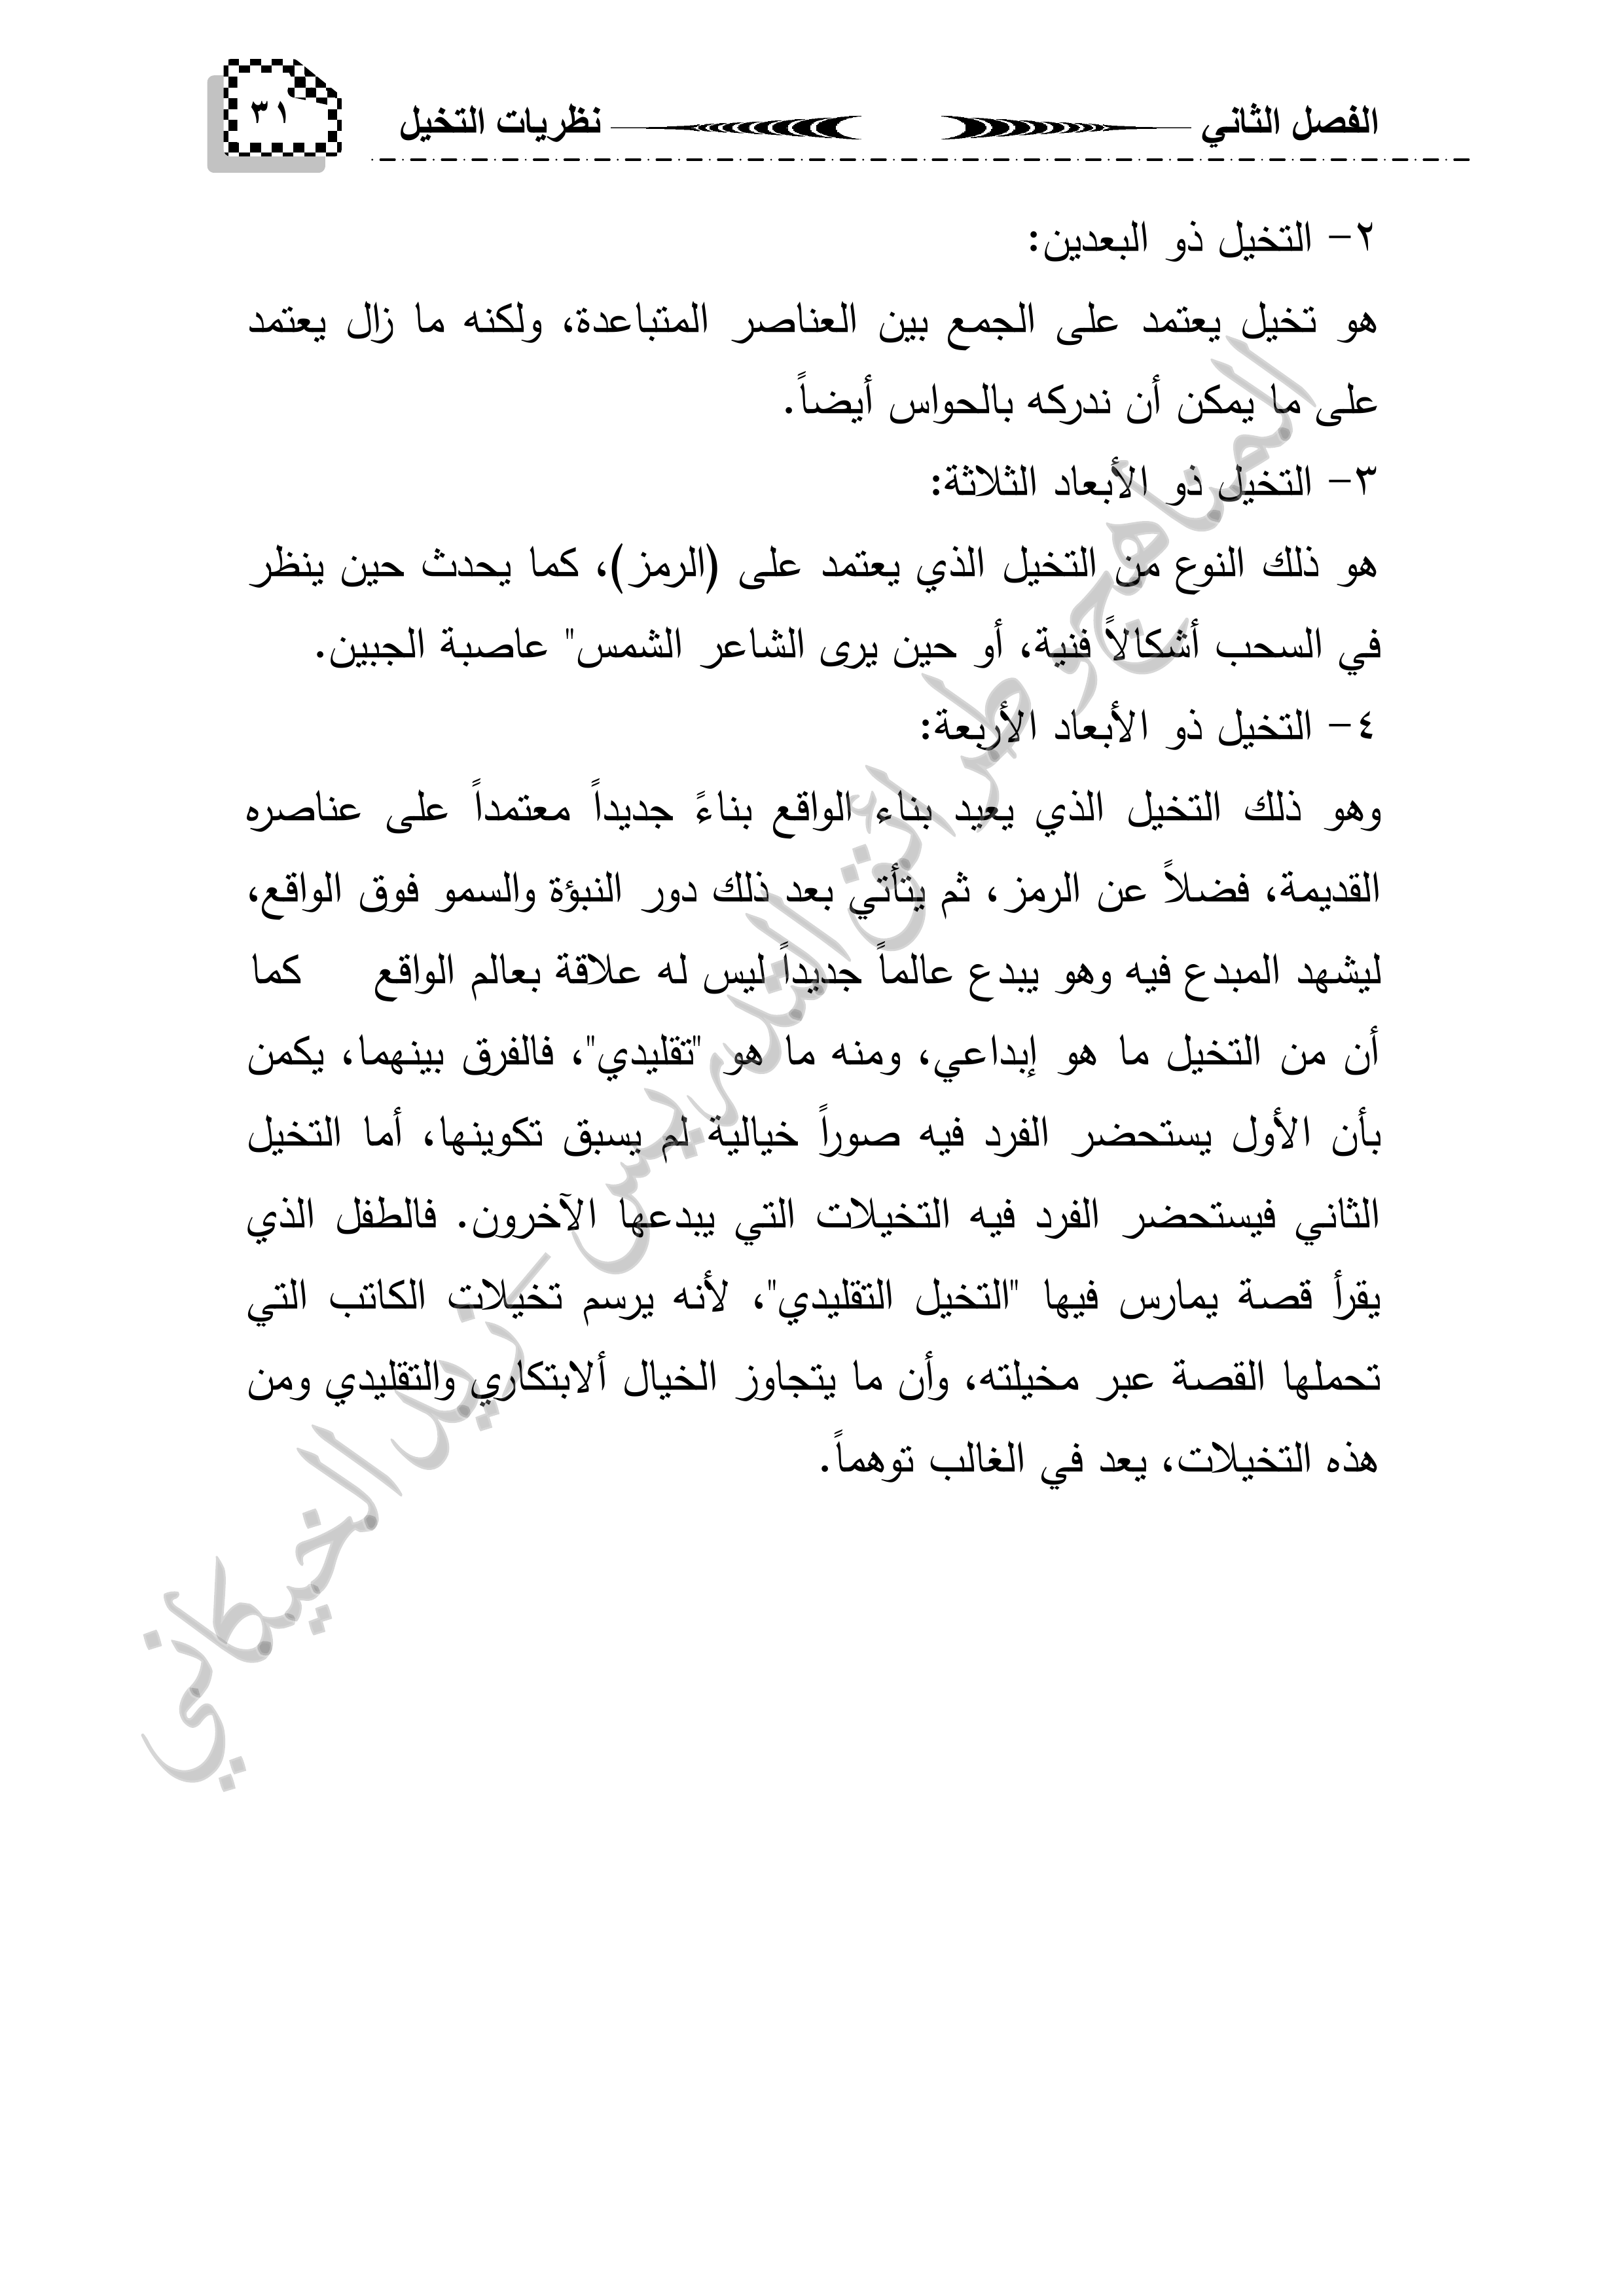 الفصل الثاني نظريات التخيل ٣١
٢- التخيل ذو البعدين:
هو تخيل يعتمد على الجمع بين العناصر المتباعدة، ولكنه ما زال يعتمد
على ما يمكن أن ندركه بالحواس أيضاً.
٣- التخيل ذو الأبعاد الثلاثة:
هو ذلك النوع من التخيل الذي يعتمد على (الرمز)، كما يحدث حين ينظر
في السحب أشكالاً فنية، أو حين يرى الشاعر الشمس" عاصبة الجبين.
٤- التخيل ذو الأبعاد الأربعة:
وهو ذلك التخيل الذي يعيد بناء الواقع بناءً جديداً معتمداً على عناصره
القديمة، فضلاً عن الرمز، ثم يتأتي بعد ذلك دور النبؤة والسمو فوق الواقع،
ليشهد المبدع فيه وهو يبدع عالماً جديداً ليس له علاقة بعالم الواقع كما
أن من التخيل ما هو إبداعي، ومنه ما هو "تقليدي"، فالفرق بينهما، يكمن
بأن الأول يستحضر الفرد فيه صوراً خيالية لم يسبق تكوينها، أما التخيل
الثاني فيستحضر الفرد فيه التخيلات التي يبدعها الآخرون. فالطفل الذي
يقرأ قصة يمارس فيها "التخيل التقليدي"، لأنه يرسم تخيلات الكاتب التي
تحملها القصة عبر مخيلته، وأن ما يتجاوز الخيال ألابتكاري والتقليدي ومن
هذه التخيلات، يعد في الغالب توهماً.
المناهج وطرائق التدريس - زيد الخيكاني